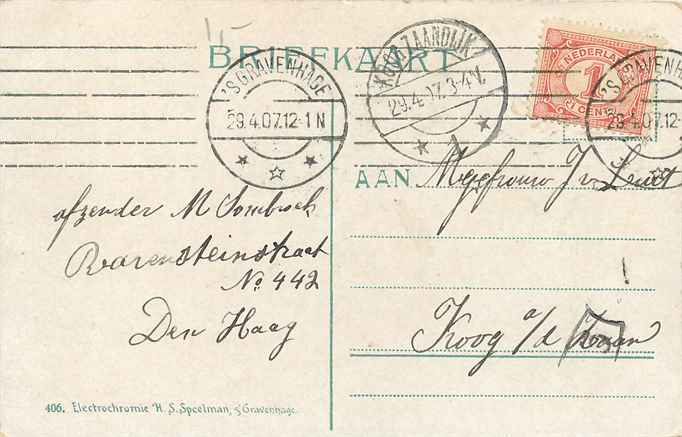 1-
BRIEFKAART
'S GRAVENHAGE
29.4.07.12-1N
KOOG ZAANDIJK
29.4.07.3-4V.
1
NEDERLAND
1
CENT
'S GRAVENHAGE
29.4.07.12-1N
AAN Mejefrouw J v. Smit
afzender M Sombroek
Ravensteinstraat
No 442
Den Haag
Koog a/d Zaan
406. Electrochromie H. S. Speelman, 's Gravenhage.